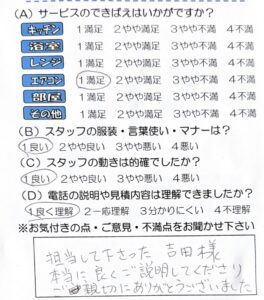 (A) サービスのできばえはいかがですか？
キッチン 1満足 2やや満足 3やや不満 4不満
浴室 1満足 2やや満足 3やや不満 4不満
レンジ 1満足 2やや満足 3やや不満 4不満
エアコン 1満足 2やや満足 3やや不満 4不満
部屋 1満足 2やや満足 3やや不満 4不満
その他 1満足 2やや満足 3やや不満 4不満
(B) スタッフの服装・言葉使い・マナーは？
1良い 2やや良い 3やや悪い 4悪い
(C) スタッフの動きは的確でしたか？
1良い 2やや良い 3やや悪い 4悪い
(D) 電話の説明や見積内容は理解できましたか？
1良く理解 2一応理解 3分かりにくい 4不理解
※お気付きの点・ご意見・不満点をお聞かせ下さい
担当して下さった 吉田様
本当に良くご説明してくださり
ご親切にありがとうございました